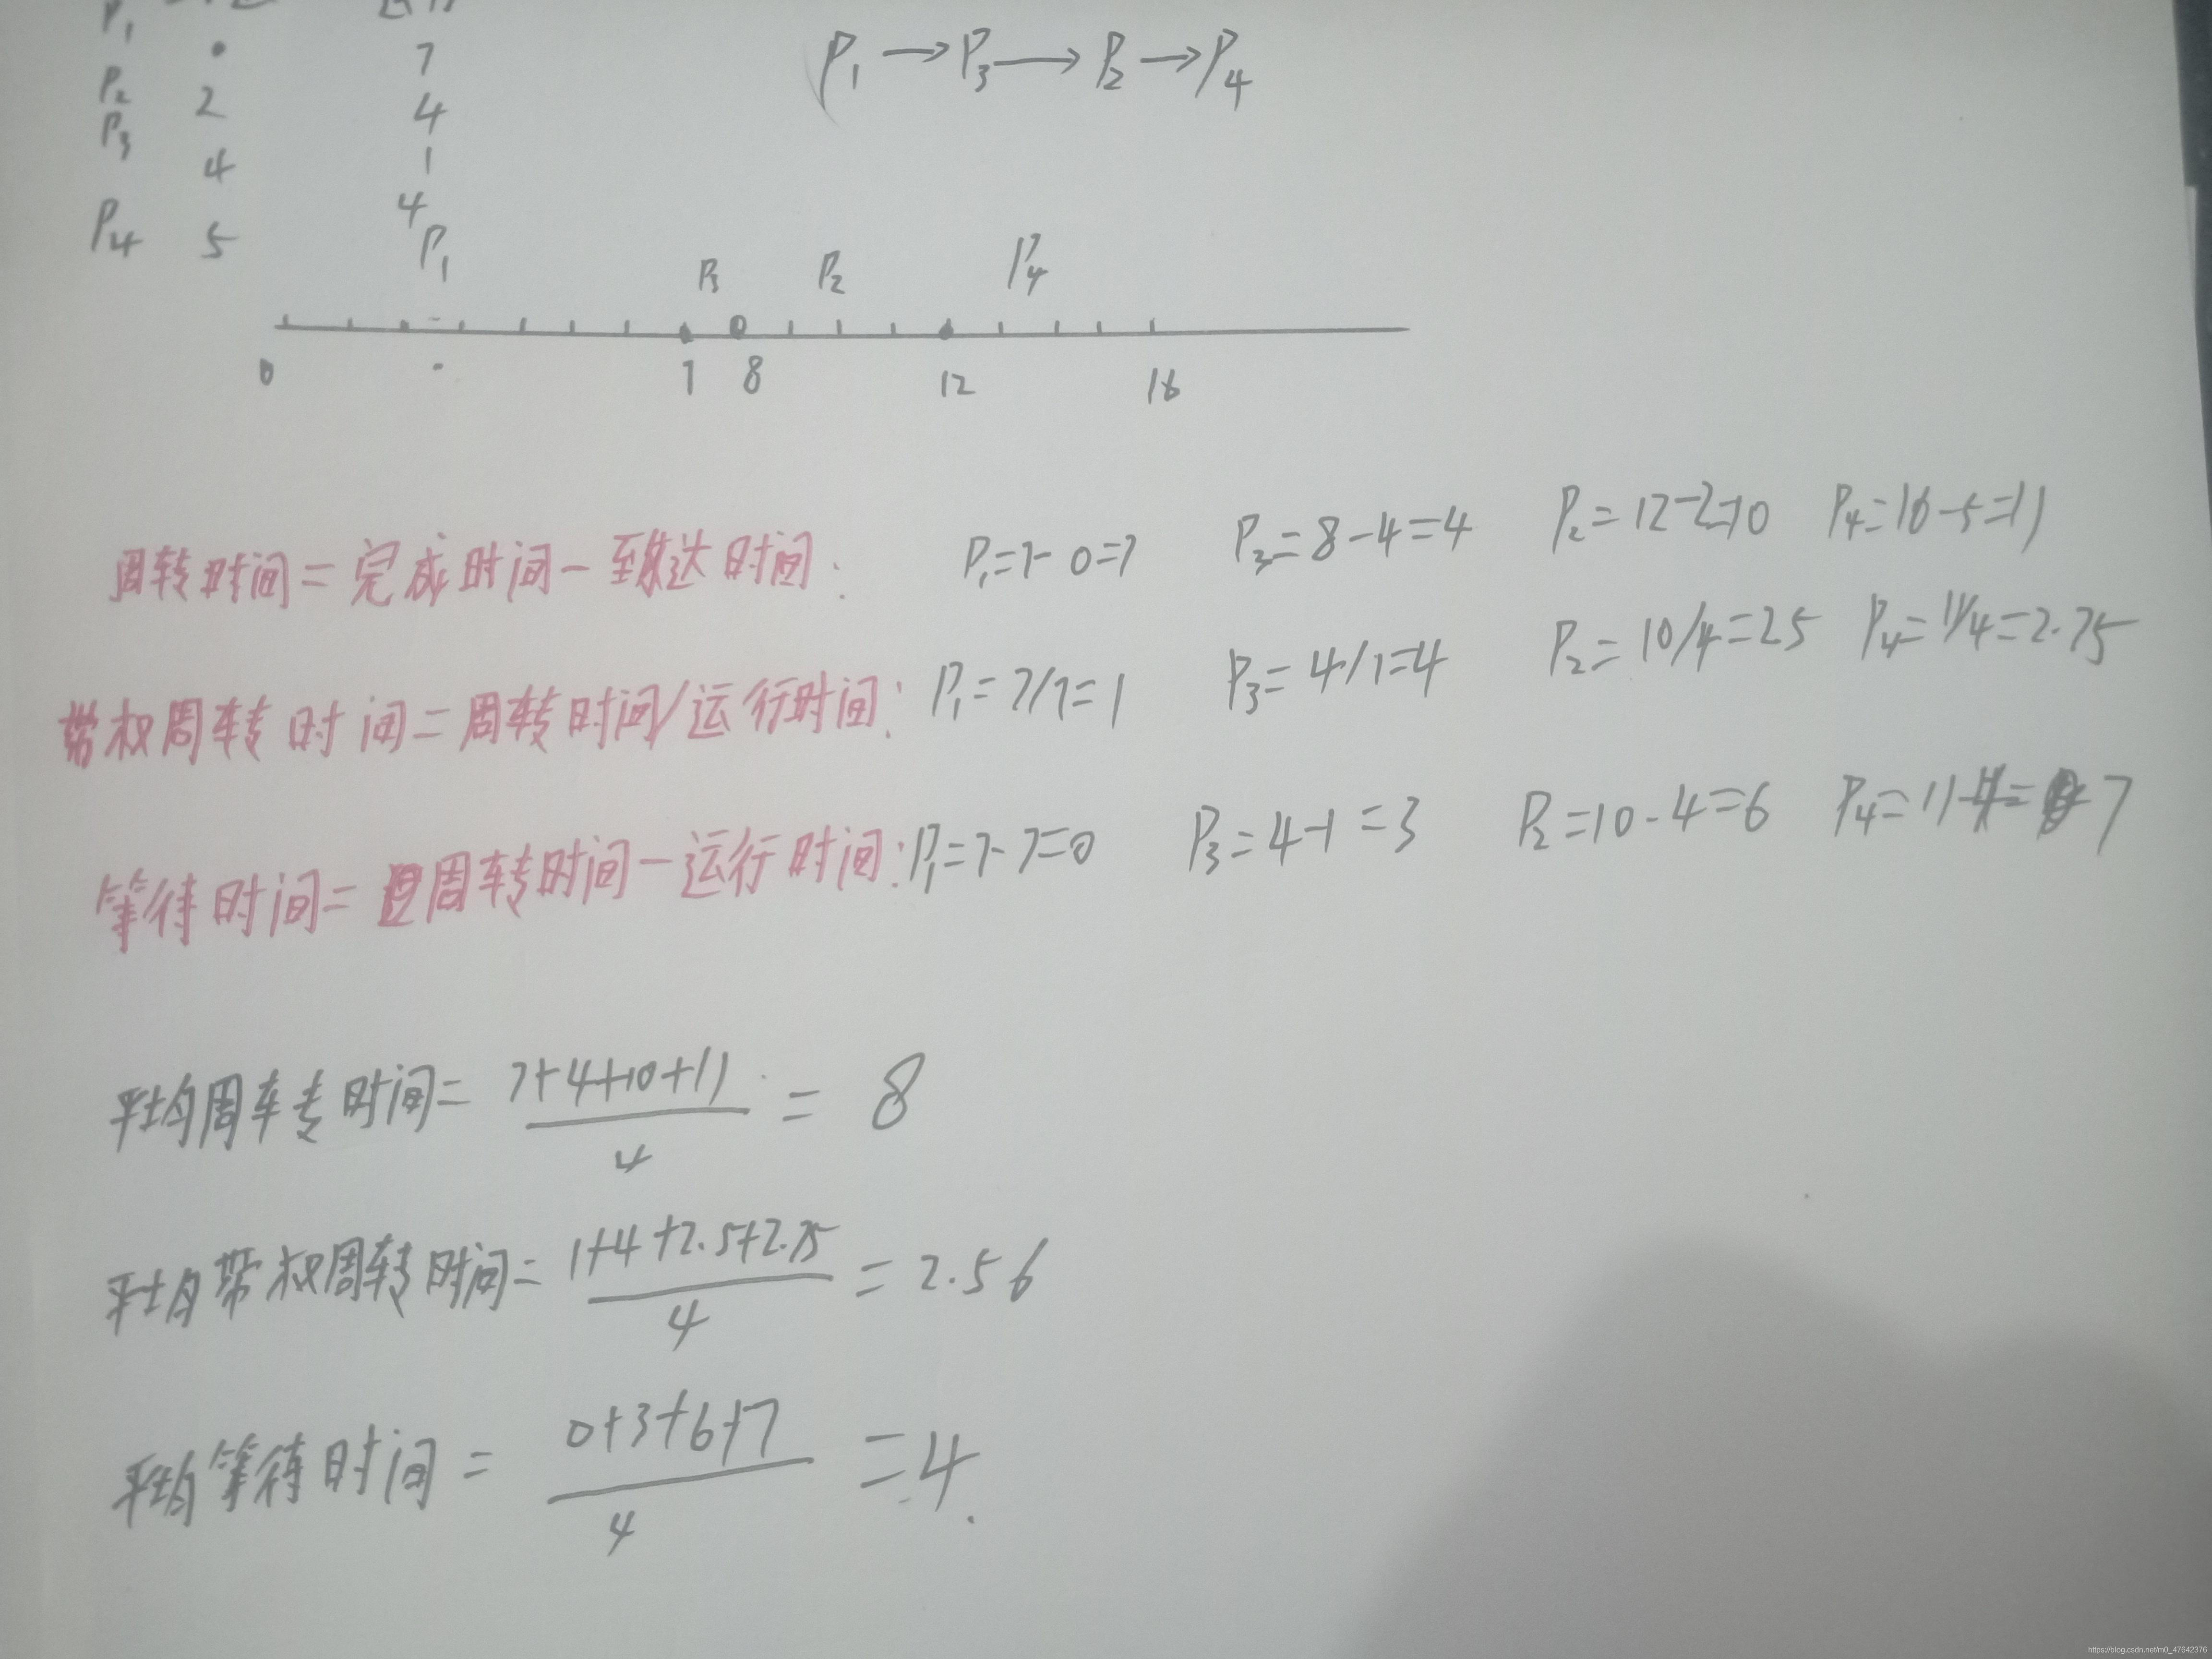 P1
0 7
P1→P3→P2→P4
P2 2 4
P3 4 1
P4 5 4
P1 P3 P2 P4
0 7 8 12 16
周转时间=完成时间-到达时间: P1=7-0=7 P3=8-4=4 P2=12-2=10 P4=16-5=11
带权周转时间=周转时间/运行时间: P1=7/7=1 P3=4/1=4 P2=10/4=25 P4=11/4=2.75
等待时间=周转时间-运行时间: P1=7-7=0 P3=4-1=3 P2=10-4=6 P4=11-4=7
平均周转时间=7+4+10+11/4=8
平均带权周转时间=1+4+2.5+2.75/4=2.56
平均等待时间=0+3+6+7/4=4.
https://blog.csdn.net/m0_47642376